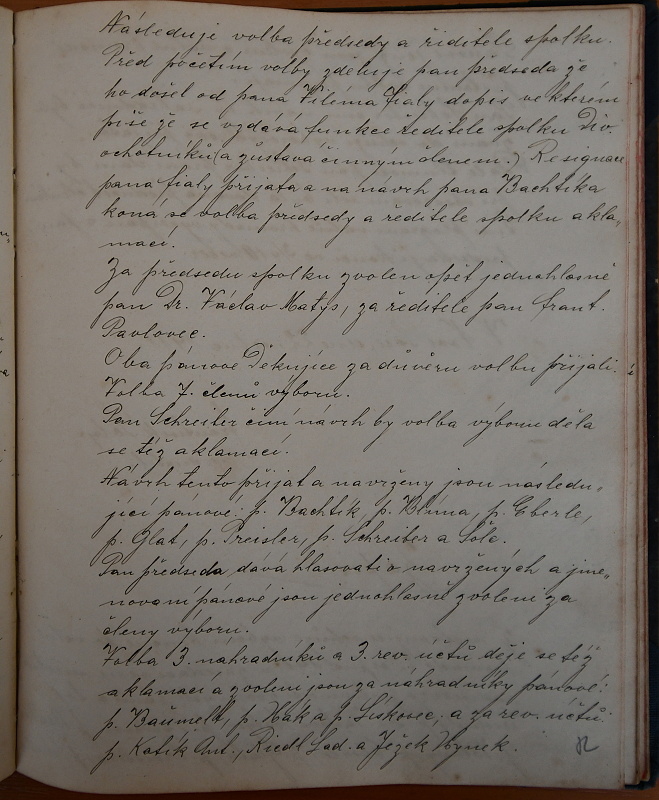 Následuje volba předsedy a řiditele spolku.
Před početím volby zděluje pan předseda že
ho došel od pana Viléma Fialy dopis ve kterém
píše že se vzdává funkce ředitele spolku Div.
ochotníků (a zůstává činným členem.) Resignace
pana Fialy přijata a na návrh pana Bachtíka
koná se volba předsedy a ředitele spolku akla„
mací.
Za předsedu spolku zvolen opět jednohlasně
pan Dr. Václav Matys, za ředitele pan Frant.
Pavlovec.
Oba pánové Děkujíce za důvěru volbu přijali.
Volba 7. členů výboru.
Pan Schreiber činí návrh by volba výboru děla
se též aklamací.
Návrh tento přijat a navrženy jsou následu„
jící pánové: p. Bachtík, p. Klíma, p. Eberle,
p. Glat, p. Preisler, p. Schreiber a Šolc.
Pan předseda dává hlasovati o navržených a jme„
novaní pánové jsou jednohlasně zvoleni za
členy výboru.
Volba 3. náhradníků a 3. rev. účtů děje se též
aklamací a zvoleni jsou za náhradníky pánové:
p. Baumelt, p. Hák a p. Liskovec, a za rev. účtů:
p. Kotík Ant., Riedl Lad. a Ježek Hynek.